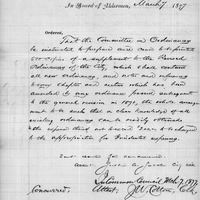 In Board of Aldermen, March 7, 1877
Ordered,
That the Committee on Ordinances
be instructed to prepare and cause to be printed
500 copies of a supplement to the Revised
Ordinances of the City, which shall contain
all new ordinances, and notes and referring
to any chapter and section which has been
amended by any ordinance passed subsequent
to the general revision in 1870, the whole arrange-
ment to be such that a clear knowledge of all
existing ordinances can be readily obtained
the expense thereof not to exceed to be charged
to the appropriation for Incidental expenses.
Sent down for concurrence.
Attest,
In Common Council, March 7, 1877
Concurred. Attest, J. W. Cotton, Clk.